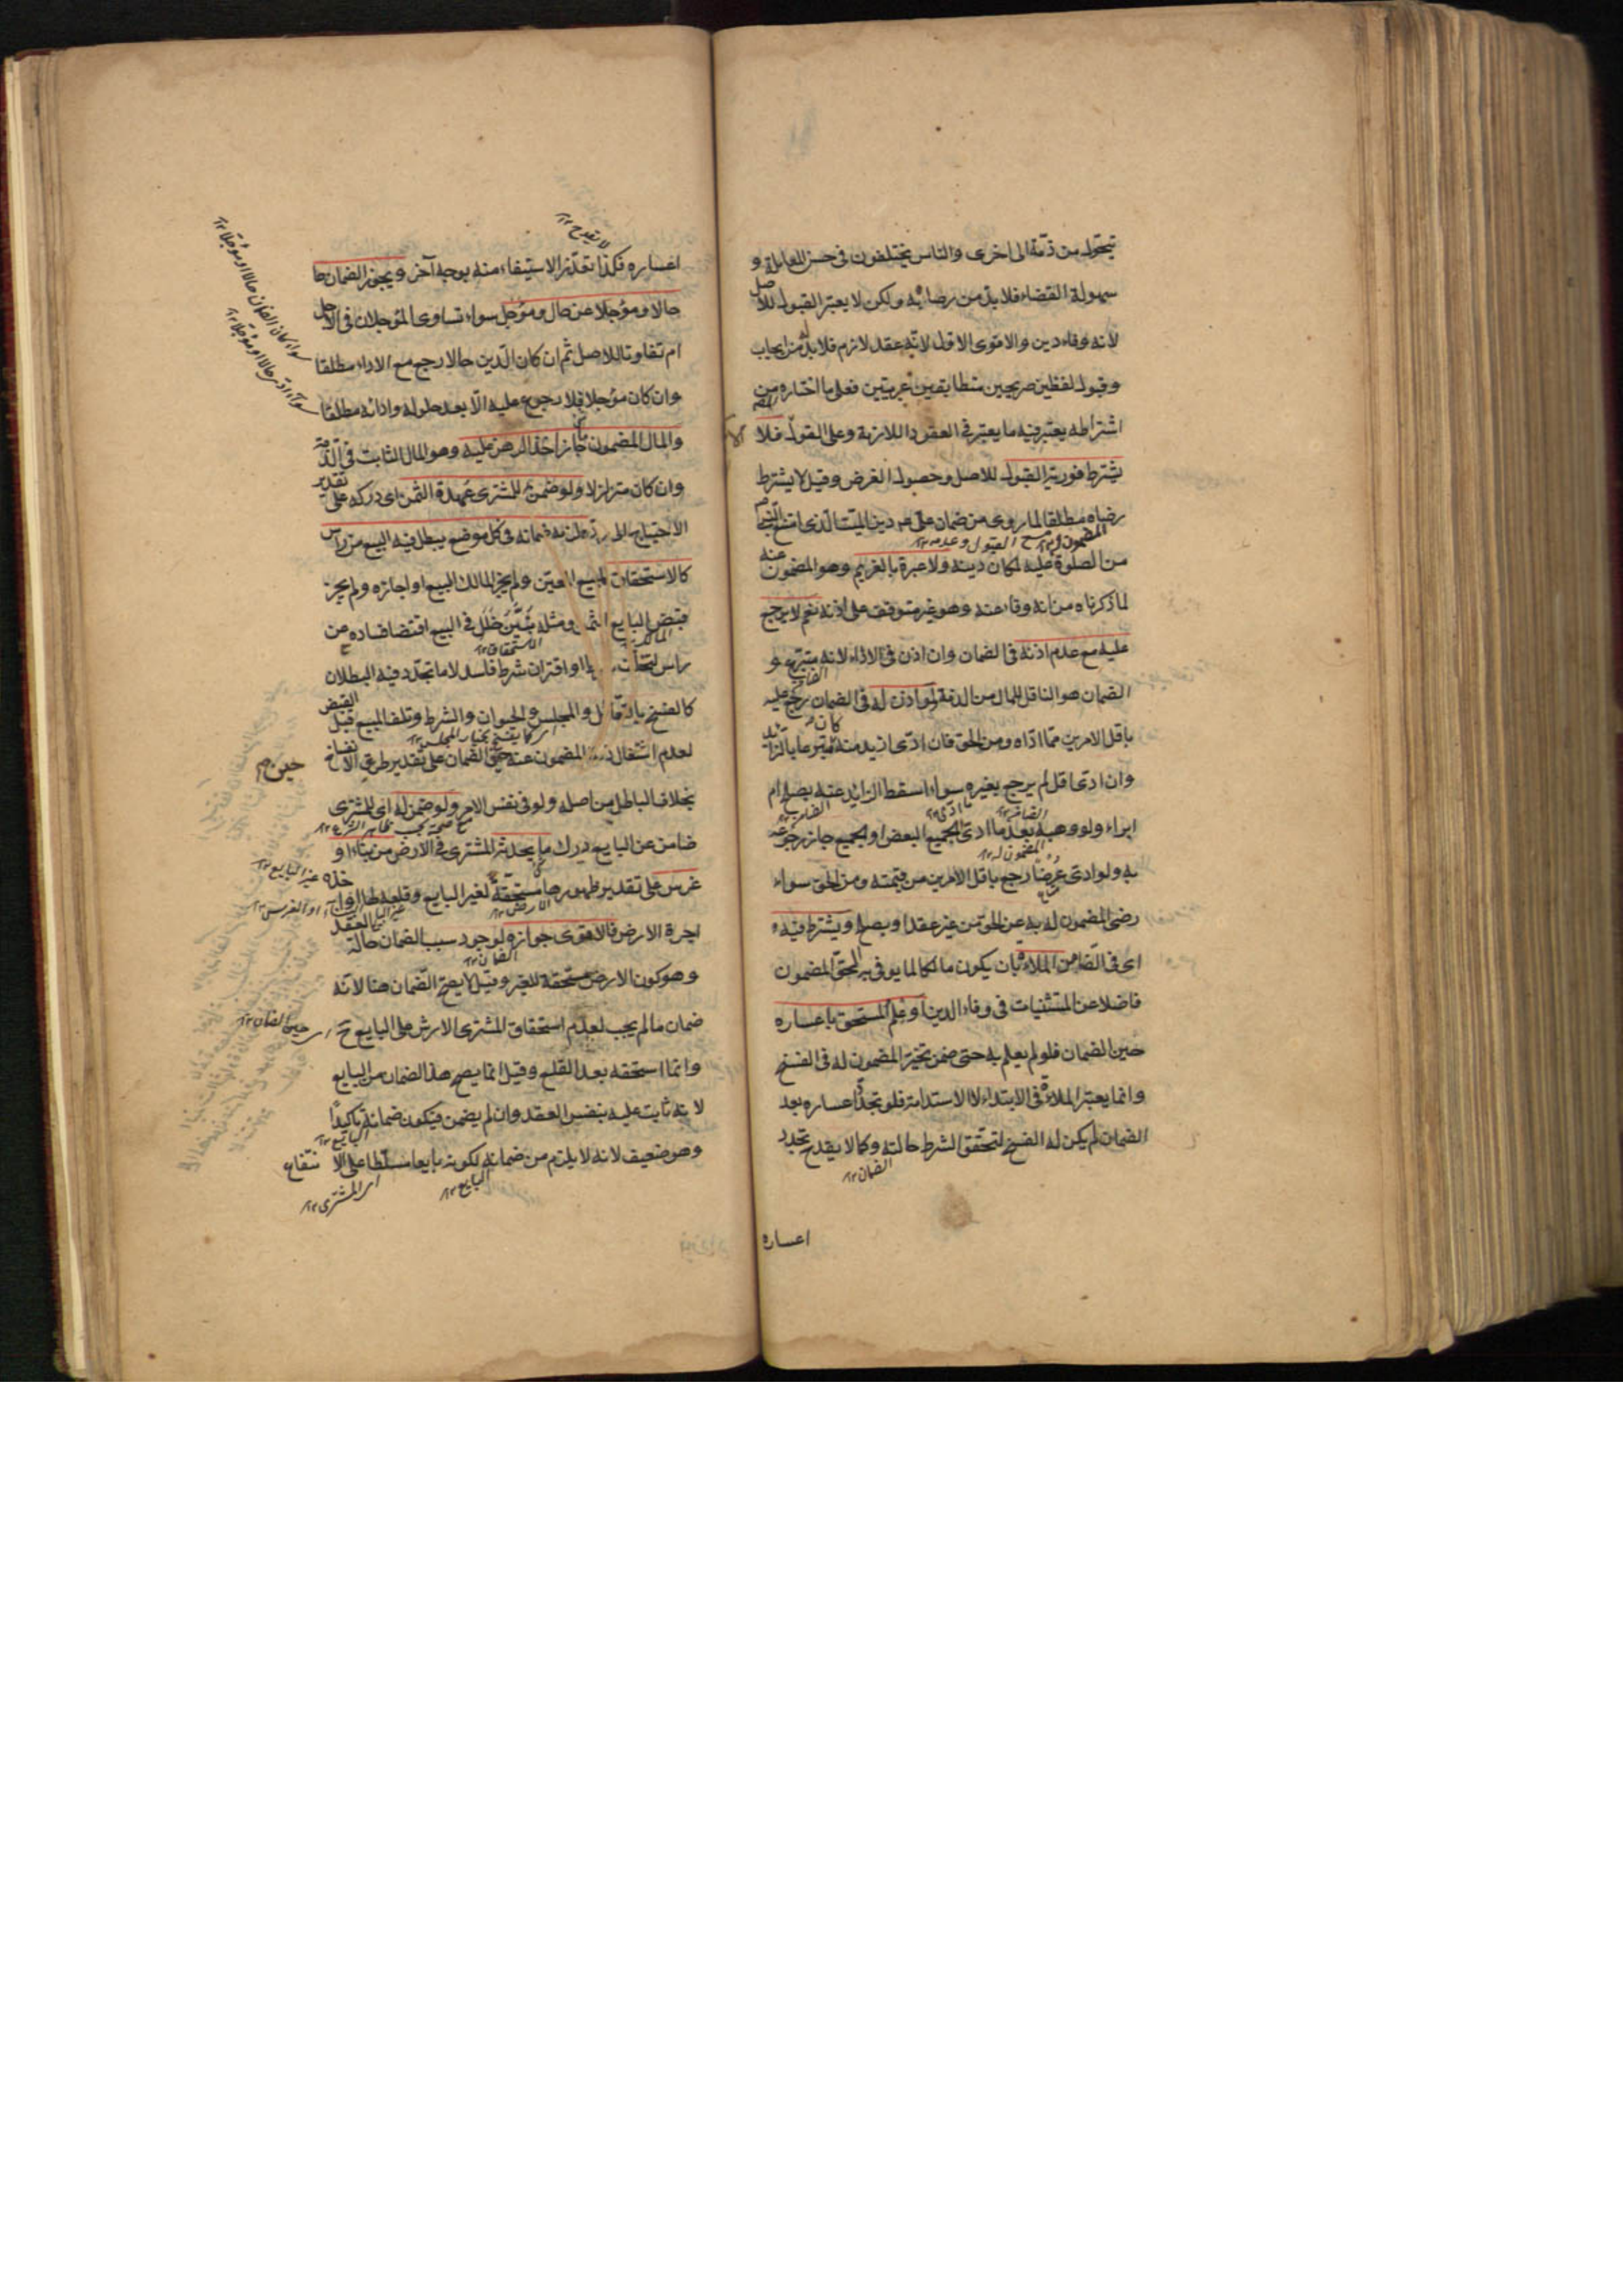 يتحول من ذمة الى اخرى والناس يختلفون فى حسن المعاملة و
سهولة القضاء فلا بد من رضاه به ولكن لا يعتبر القبول للاصل
لانه وفاء دين والاقوى الاول لانه عقد لازم فلا بد له من ايجاب
وقبول لفظين صريحين متطابقين عربيين فعلى ما اختاره من
المصم
اشتراطه يعتبر فيه ما يعتبر فى العقود اللازمة وعلى القول فلا
يشترط فورية القبول للاصل وحصول الغرض وقيل لا يشترط
رضاه مطلقا لما روى من ضمان على ع دين الميت الذى امتنع النبى ص
المضمون له القبول وعدمه ١٢
من الصلوة عليه لمكان دينه ولا عبرة بالغريم وهو المضمون عنه
لما ذكرناه من انه وفاء عنه وهو غير متوقف على اذنه نعم لا يرجع
عليه مع عدم اذنه فى الضمان وان اذن فى الاداء لانه متبرع و
الضمان هو الناقل للمال من الذمة ولو اذن له فى الضمان رجع عليه
باقل الامرين مما اداه ومن الحق فان ادى ازيد منه كان متبرعا بالزايد
وان ادى اقل لم يرجع بغيره سواء اسقط الزايد عنه بصلح ام
الضامن ١٢ ما ادى ١٢ الضامن ١٢
ابراء ولو وهبه بعد ما ادى الجميع البعض او الجميع جاز رجوعه
المضمون له ١٢
به ولو ادى عرضا رجع باقل الامرين من قيمته ومن الحق سواء
متاع
رضى المضمون له به عن الحق من غير عقد او بصلح ويشترط فيه
اى فى الضامن الملاءة بان يكون مالكا لما يوفى به الحق المضمون
فاضلا عن المستثنيات فى وفاء الدين او علم المستحق باعساره
حين الضمان فلو لم يعلم به حتى ضمن تخير المضمون له فى الفسخ
وانما يعتبر الملاءة فى الابتداء لا الاستدامة فلو تجدد اعساره بعد
الضمان لم يكن له الفسخ لتحقق الشرط حالته وكما لا يقدح تجدد
الضمان ١٢
اعساره
لا يقدح ١٢
اعساره فكذا تعذر الاستيفاء منه بوجه آخر ويجوز الضمان حا
حالا ومؤجلا عن حال ومؤجل سواء تساوى المؤجلان فى الاجل
ام تفاوتا للاصل ثم ان كان الدين حالا رجع مع الاداء مطلقا
سواء كان الضمان حالا او مؤجلا ١٢
وان كان مؤجلا فلا رجوع عليه الا بعد حلوله وادائه مطلقا
سواء ادى حالا او مؤجلا ١٢
والمال المضمون ما جاز اخذ الرهن عليه وهو المال الثابت فى الذمة
وان كان متزلزلا ولو ضمن للمشترى عهدة الثمن اى دركه على تقدير
الاحتياج الى رده لزمه ضمانه فى كل موضع يبطل فيه البيع من راس
كالاستحقاق للمبيع المعين ولم يجز المالك البيع او اجازه ولم يجز
قبض البايع الثمن ومثله تبين خلل فى البيع اقتضى فساده من
المالك ١٢ الاستحقاق ١٢
راس كتخلف شرط او اقتران شرط فاسد لا ما تجدد فيه البطلان
كالفسخ بالتقايل والمجلس والحيوان والشرط وتلف المبيع قبل القبض
كما يفسخ بخيار المجلس ١٢
لعدم اشتغال ذمة المضمون عنه حين الضمان على تقدير طرو الانفساخ
حين م
بخلاف الباطل من اصله ولو فى نفس الامر ولو ضمن له اى للمشترى
مع صحته بحسب ظاهر الشرع ١٢
ضامن عن البايع درك ما يحدثه المشترى فى الارض من بناء او
غرس على تقدير ظهورها مستحقة لغير البايع وقلعه لها او اخذه
غير البايع ١٢
الارض ١٢
البناء او الغرس ١٢
اجرة الارض فالاقوى جوازه لوجود سبب الضمان حالة العقد
الضمان ١٢
وهو كون الارض مستحقة للغير وقيل لا يصح الضمان هنا لانه
ضمان ما لم يجب لعدم استحقاق المشترى الارش على البايع ح
اى حين الضمان ١٢
وانما استحقه بعد القلع وقيل انما يصح هذا الضمان من البايع
لانه ثابت عليه بنفس العقد وان لم يضمن فيكون ضمانه تاكيدا
البايع ١٢
وهو ضعيف لانه لا يلزم من ضمانه لكونه بايعا مسلطا على الانتفاع
البايع ١٢
اى المشترى ١٢